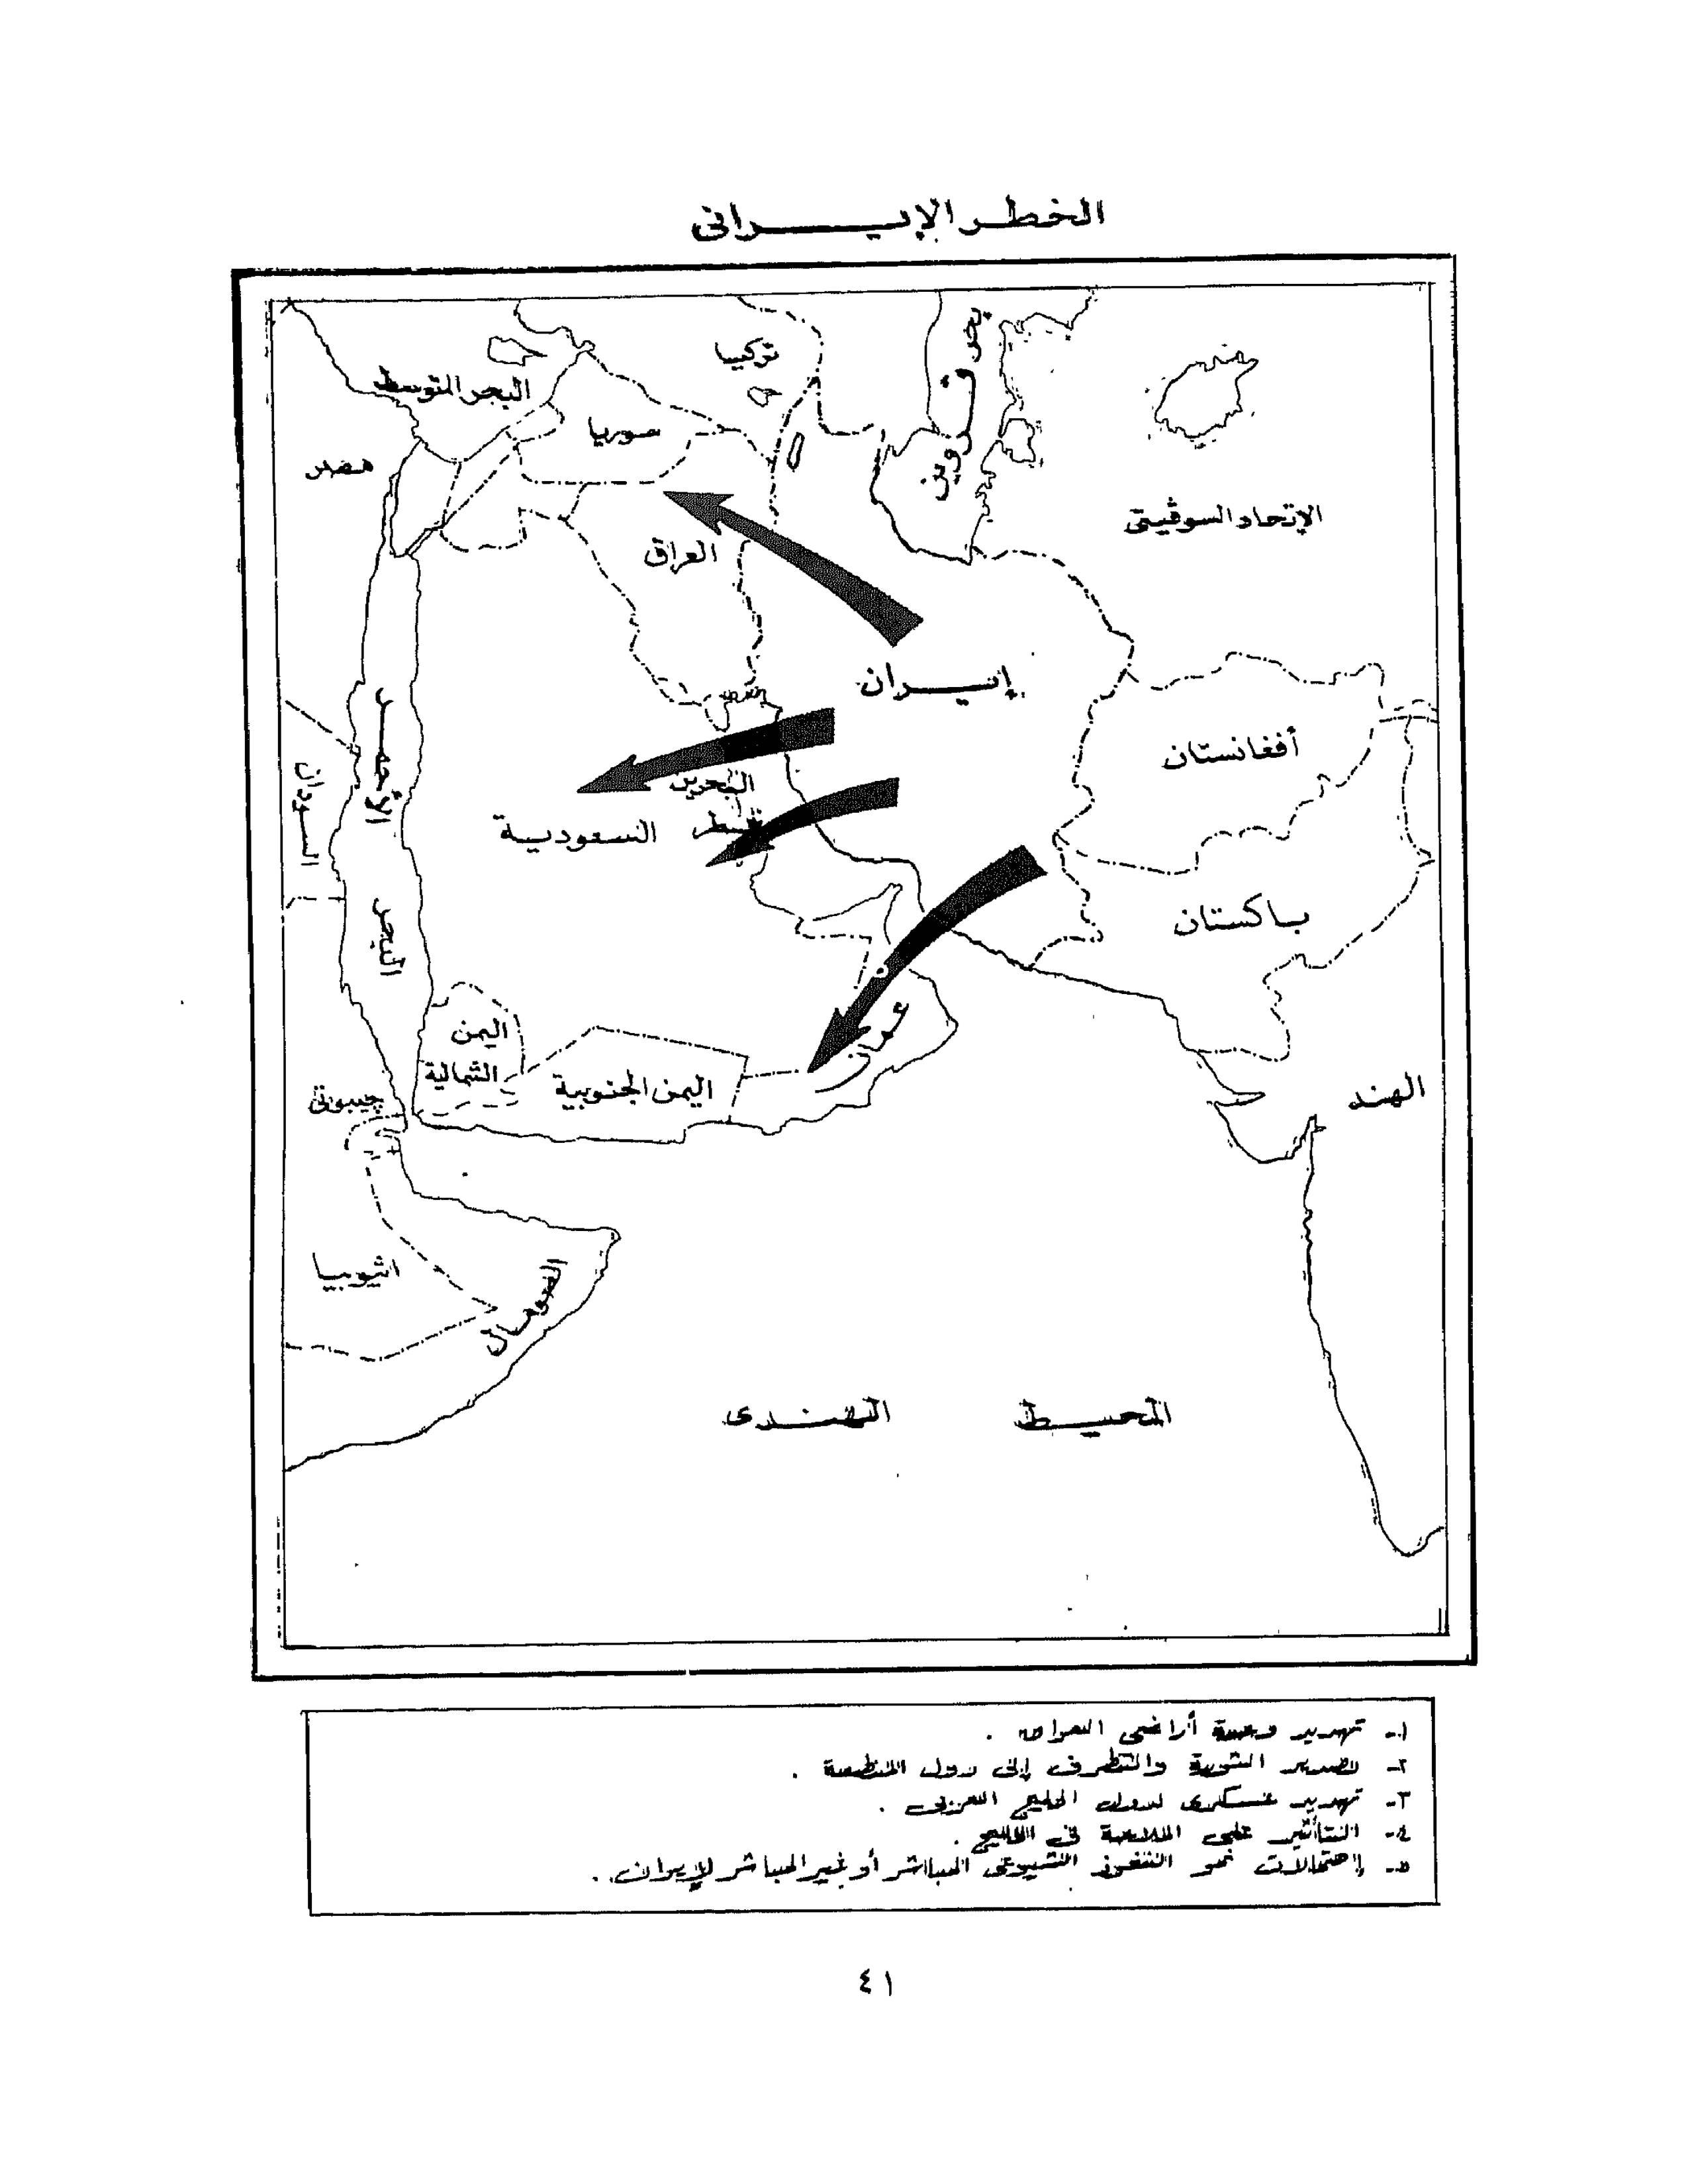 الخطر الإيرانى
بحر قزوين
تركيا
البحر المتوسط
سوريا
مصر
الإتحاد السوڤيتى
العراق
إيران
أفغانستان
البحر الأحمر
السودان
البحرين
قطر
السعودية
باكستان
عمان
اليمن
الشمالية
اليمن الجنوبية
چيبوتى
الهند
اثيوبيا
الصومال
المحيط الهندى
١- تهديد وحدة أراضى العراق .
٢- تصدير الثورة والتطرف إلى دول المنطقة .
٣- تهديد عسكرى لدول الخليج العربى .
٤- التأثير على الملاحة فى الخليج .
٥- إحتمالات نمو النفوذ الشيوعى المباشر أو غير المباشر لإيران .
٤١